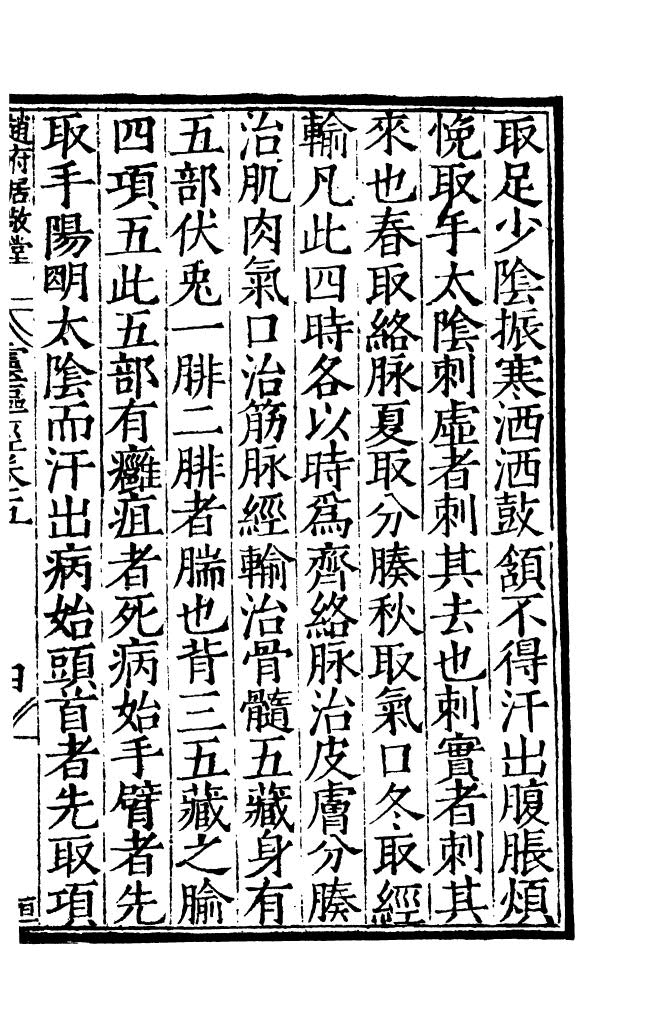 取足少陰振寒洒洒鼓頷不得汗出腹脹煩
悗取手太陰刺虛者刺其去也刺實者刺其
來也春取絡脉夏取分腠秋取氣口冬取經
輸凡此四時各以時爲齊絡脉治皮膚分腠
治肌肉氣口治筋脉經輸治骨髓五藏身有
五部伏兎一腓二腓者腨也背三五藏之腧
四項五此五部有癰疽者死病始手臂者先
取手陽明太陰而汗出病始頭首者先取項
趙府居敬堂